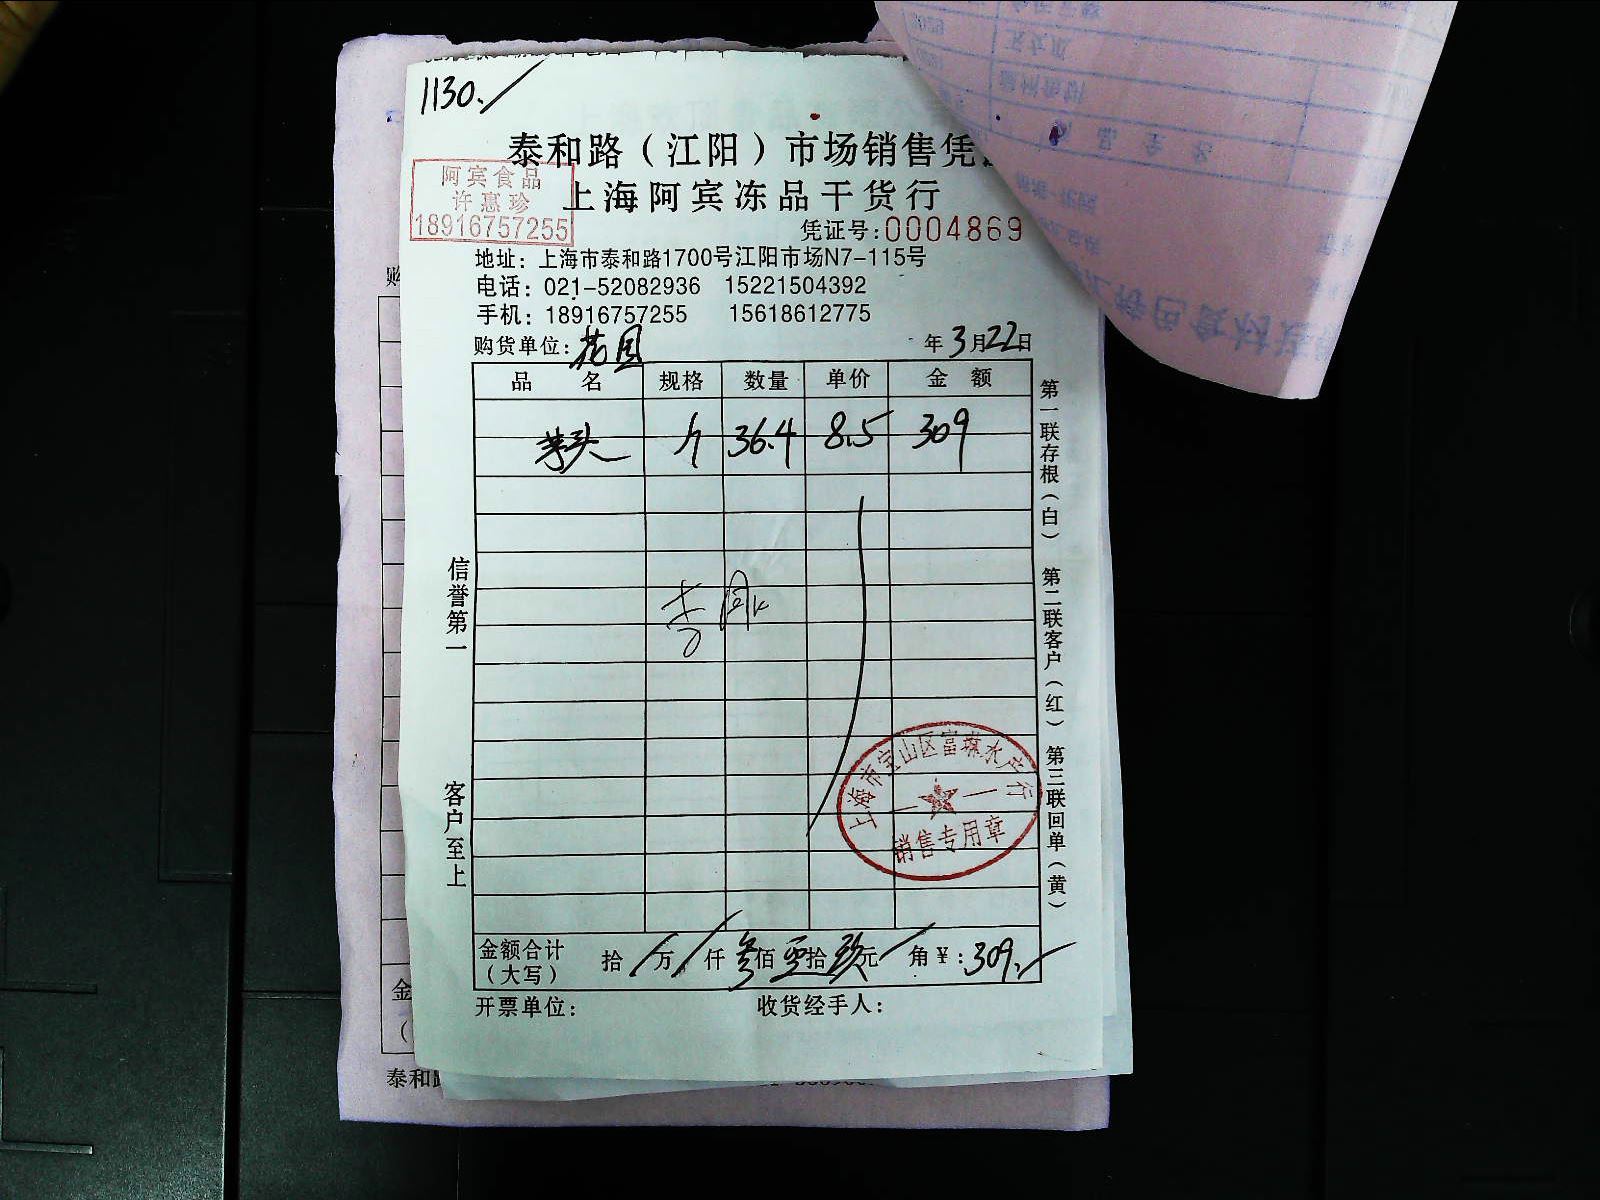 1130.
泰和路（江阳）市场销售凭
阿宾食品
许惠珍
18916757255
上海阿宾冻品干货行
凭证号:0004869
地址：上海市泰和路1700号江阳市场N7-115号
电话：021-52082936 15221504392
手机：18916757255 15618612775
购货单位：花园 年3月22日
品 名 规格 数量 单价 金 额
芋头 斤 36.4 8.5 309
第一联存根（白） 第二联客户（红） 第三联回单（黄）
信誉第一 客户至上
上海市宝山区富琳水产行
销售专用章
金额合计（大写） 拾 万 仟 叁佰 零拾 玖元 角￥：309.
开票单位： 收货经手人：
购
金
泰和路